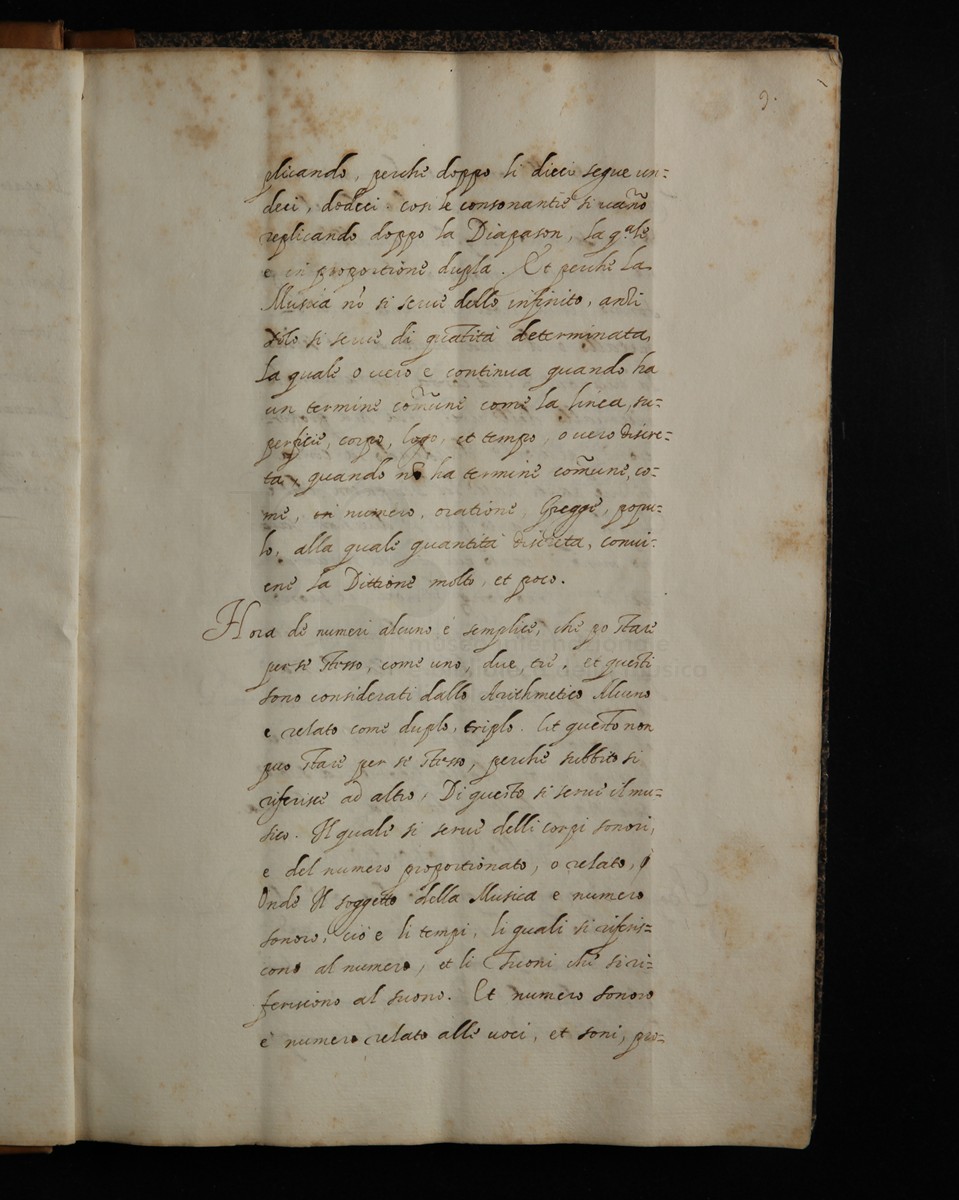 9.
plicando, perche doppo li dieci segue un=
deci, dodeci cosi le consonantie si uan̄o
replicando doppo la Diapason, la q.ale
e in proportione dupla. Et perche la
Musica nõ si serue dello infinito, anzi
solo si serue di quãtità determinata,
la quale o uero e continua quando ha
un termine com̄une come la linea, su=
perficie, corpo, logo, et tempo, o uero discre=
ta, quando nõ ha termine com̄une, co=
me, numero, oratione, Gregge, popu=
lo, alla quale quantità discreta, conui=
ene la Dittione molto, et poco.
Hora de numeri alcuno è semplice, che po stare
per se stesso, come uno, due, trè, et questi
sono considerati dallo Arithmetico Alcuno
e relato come duplo, triplo. Et questo non
puo stare per se stesso, perche subbito si
riferisce ad altro, Di questo si serue il mu=
sico. Il quale si serue delli corpi sonori,
e del numero proportionato, o relato,
Onde Il soggetto della Musica e numero
sonoro, cio e li tempi, li quali si riferis=
cono al numero, et li suoni che si ri=
feriscono al suono. Et numero sonoro
è numero relato alle uoci, et soni, pro=